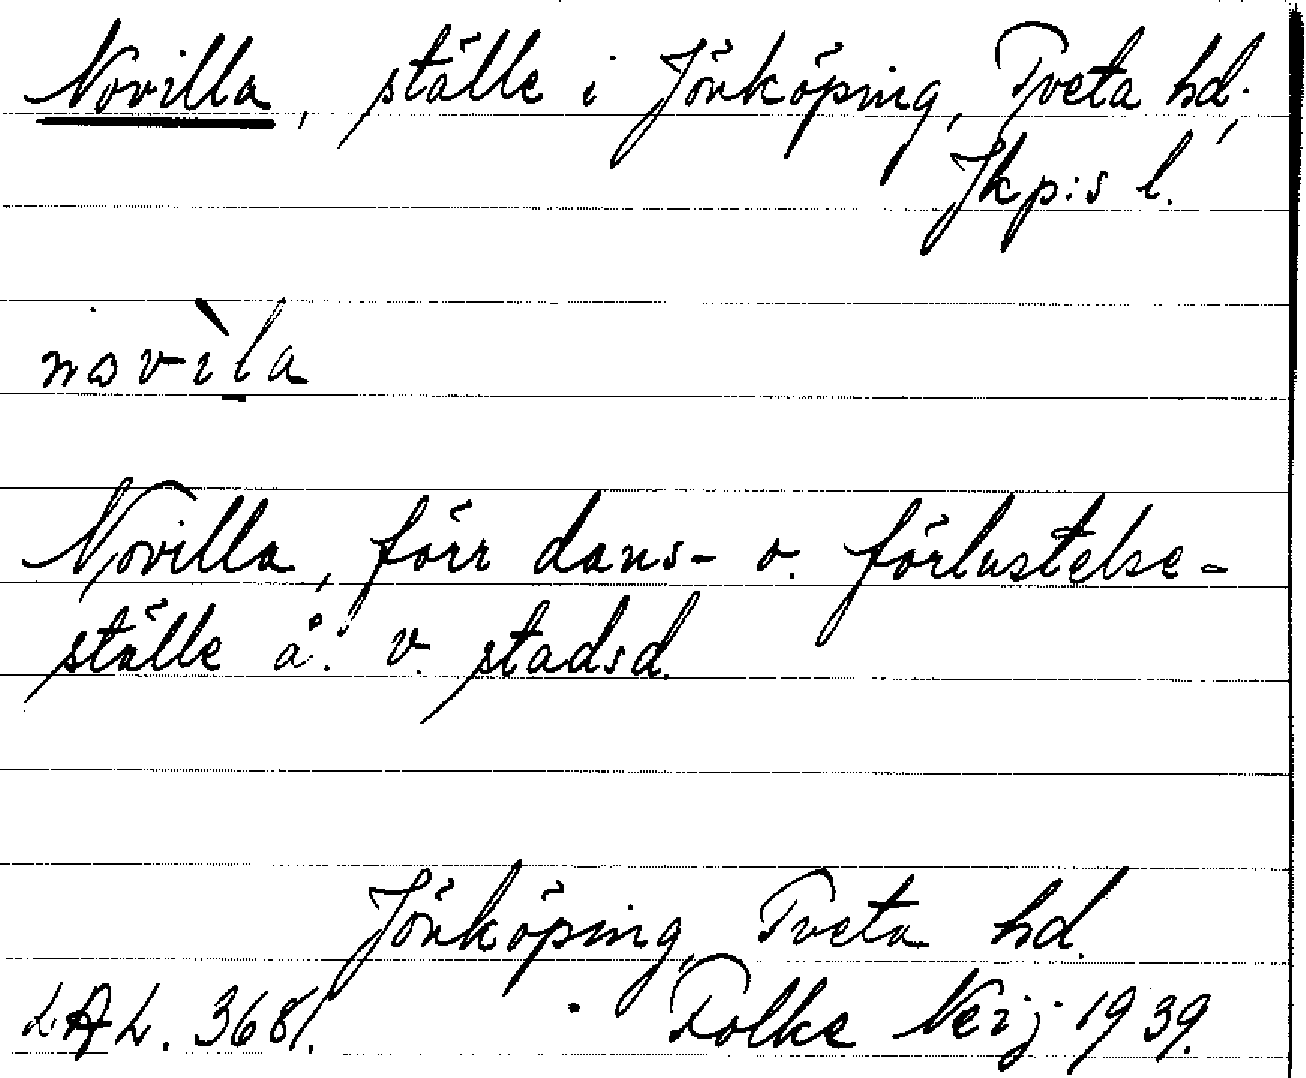 Novilla, ställe i Jönköping, Tveta hd.,
Jkp:s l.
novìla
Novilla, förr dans- o. förlustelse-
ställe å. v. stadsd.
Jönköping, Tveta hd.
LAL. 3681. Folke Neij 1939.